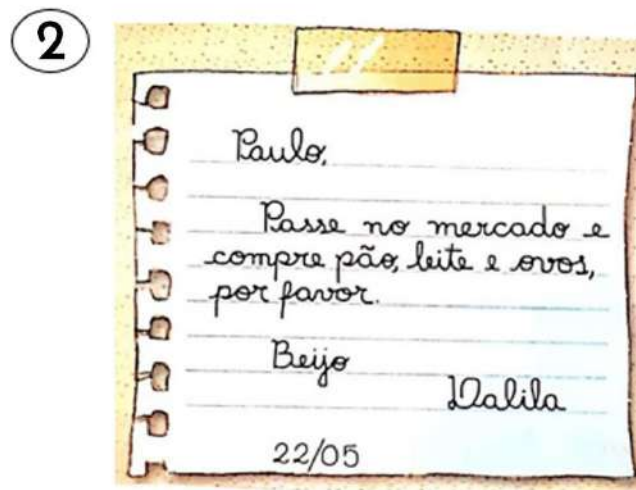 2
Paulo,
Passe no mercado e
compre pão, leite e ovos,
por favor.
Beijo
Dalila
22/05